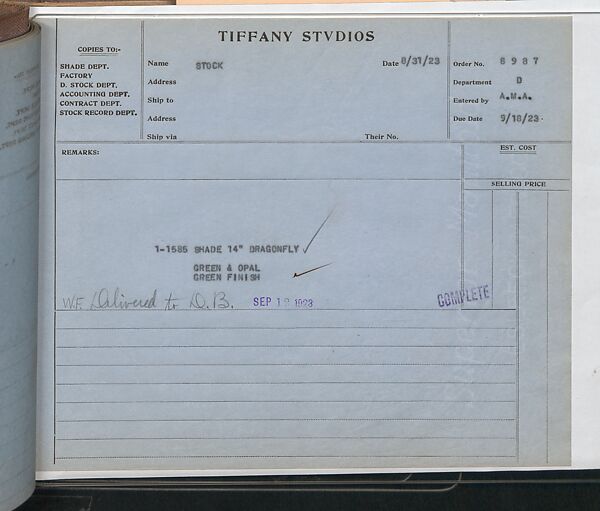 TIFFANY STVDIOS
COPIES TO:-
SHADE DEPT.
FACTORY
D. STOCK DEPT.
ACCOUNTING DEPT.
CONTRACT DEPT.
STOCK RECORD DEPT.
Name STOCK Date 8/31/23
Address
Ship to
Address
Ship via Their No.
Order No. 8987
Department D
Entered by A.M.A.
Due Date 9/18/23.
REMARKS:
EST. COST
SELLING PRICE
1-1585 SHADE 14" DRAGONFLY
GREEN & OPAL
GREEN FINISH
W.F. Delivered to D.B. SEP 19 1923 COMPLETE